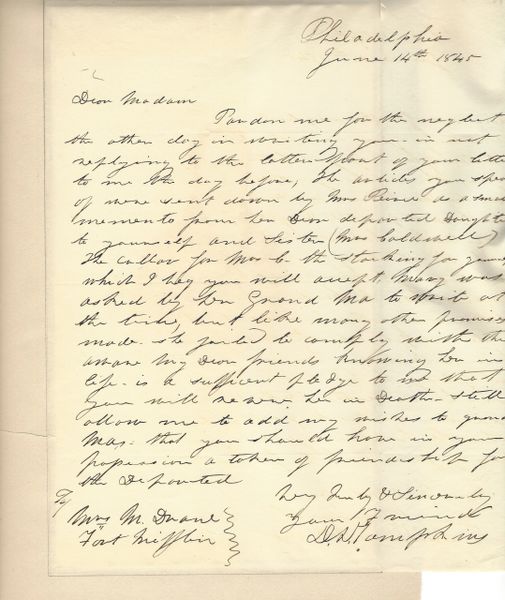 Philadelphia
June 14th 1845
Dear Madam
Pardon me for the neglect
the other day in writing you - in not
replying to the latter part of your lette
to me the day before, The articles you spea
of were sent down by Mrs as a smal
memento from her Dear departed Daughte
to yourself and Sister (Mrs Caldwell)
The collar for Mrs C. the for yours
which I beg you will accept. Mary was
asked by her Grand Ma to write at
the time, but like many other promises
made - she failed to comply with the
my Dear friends knowing her in
life - is a sufficient pledge to me that
you will revere her in Death - Still
allow me to add my wishes to grand
Mas - that you should have in your
possession a token of friendship for
the Departed
Very Truly & Sincerely
Your Friend
D. D. Tompkins
To
Mrs M. Duane
Fort Mifflin